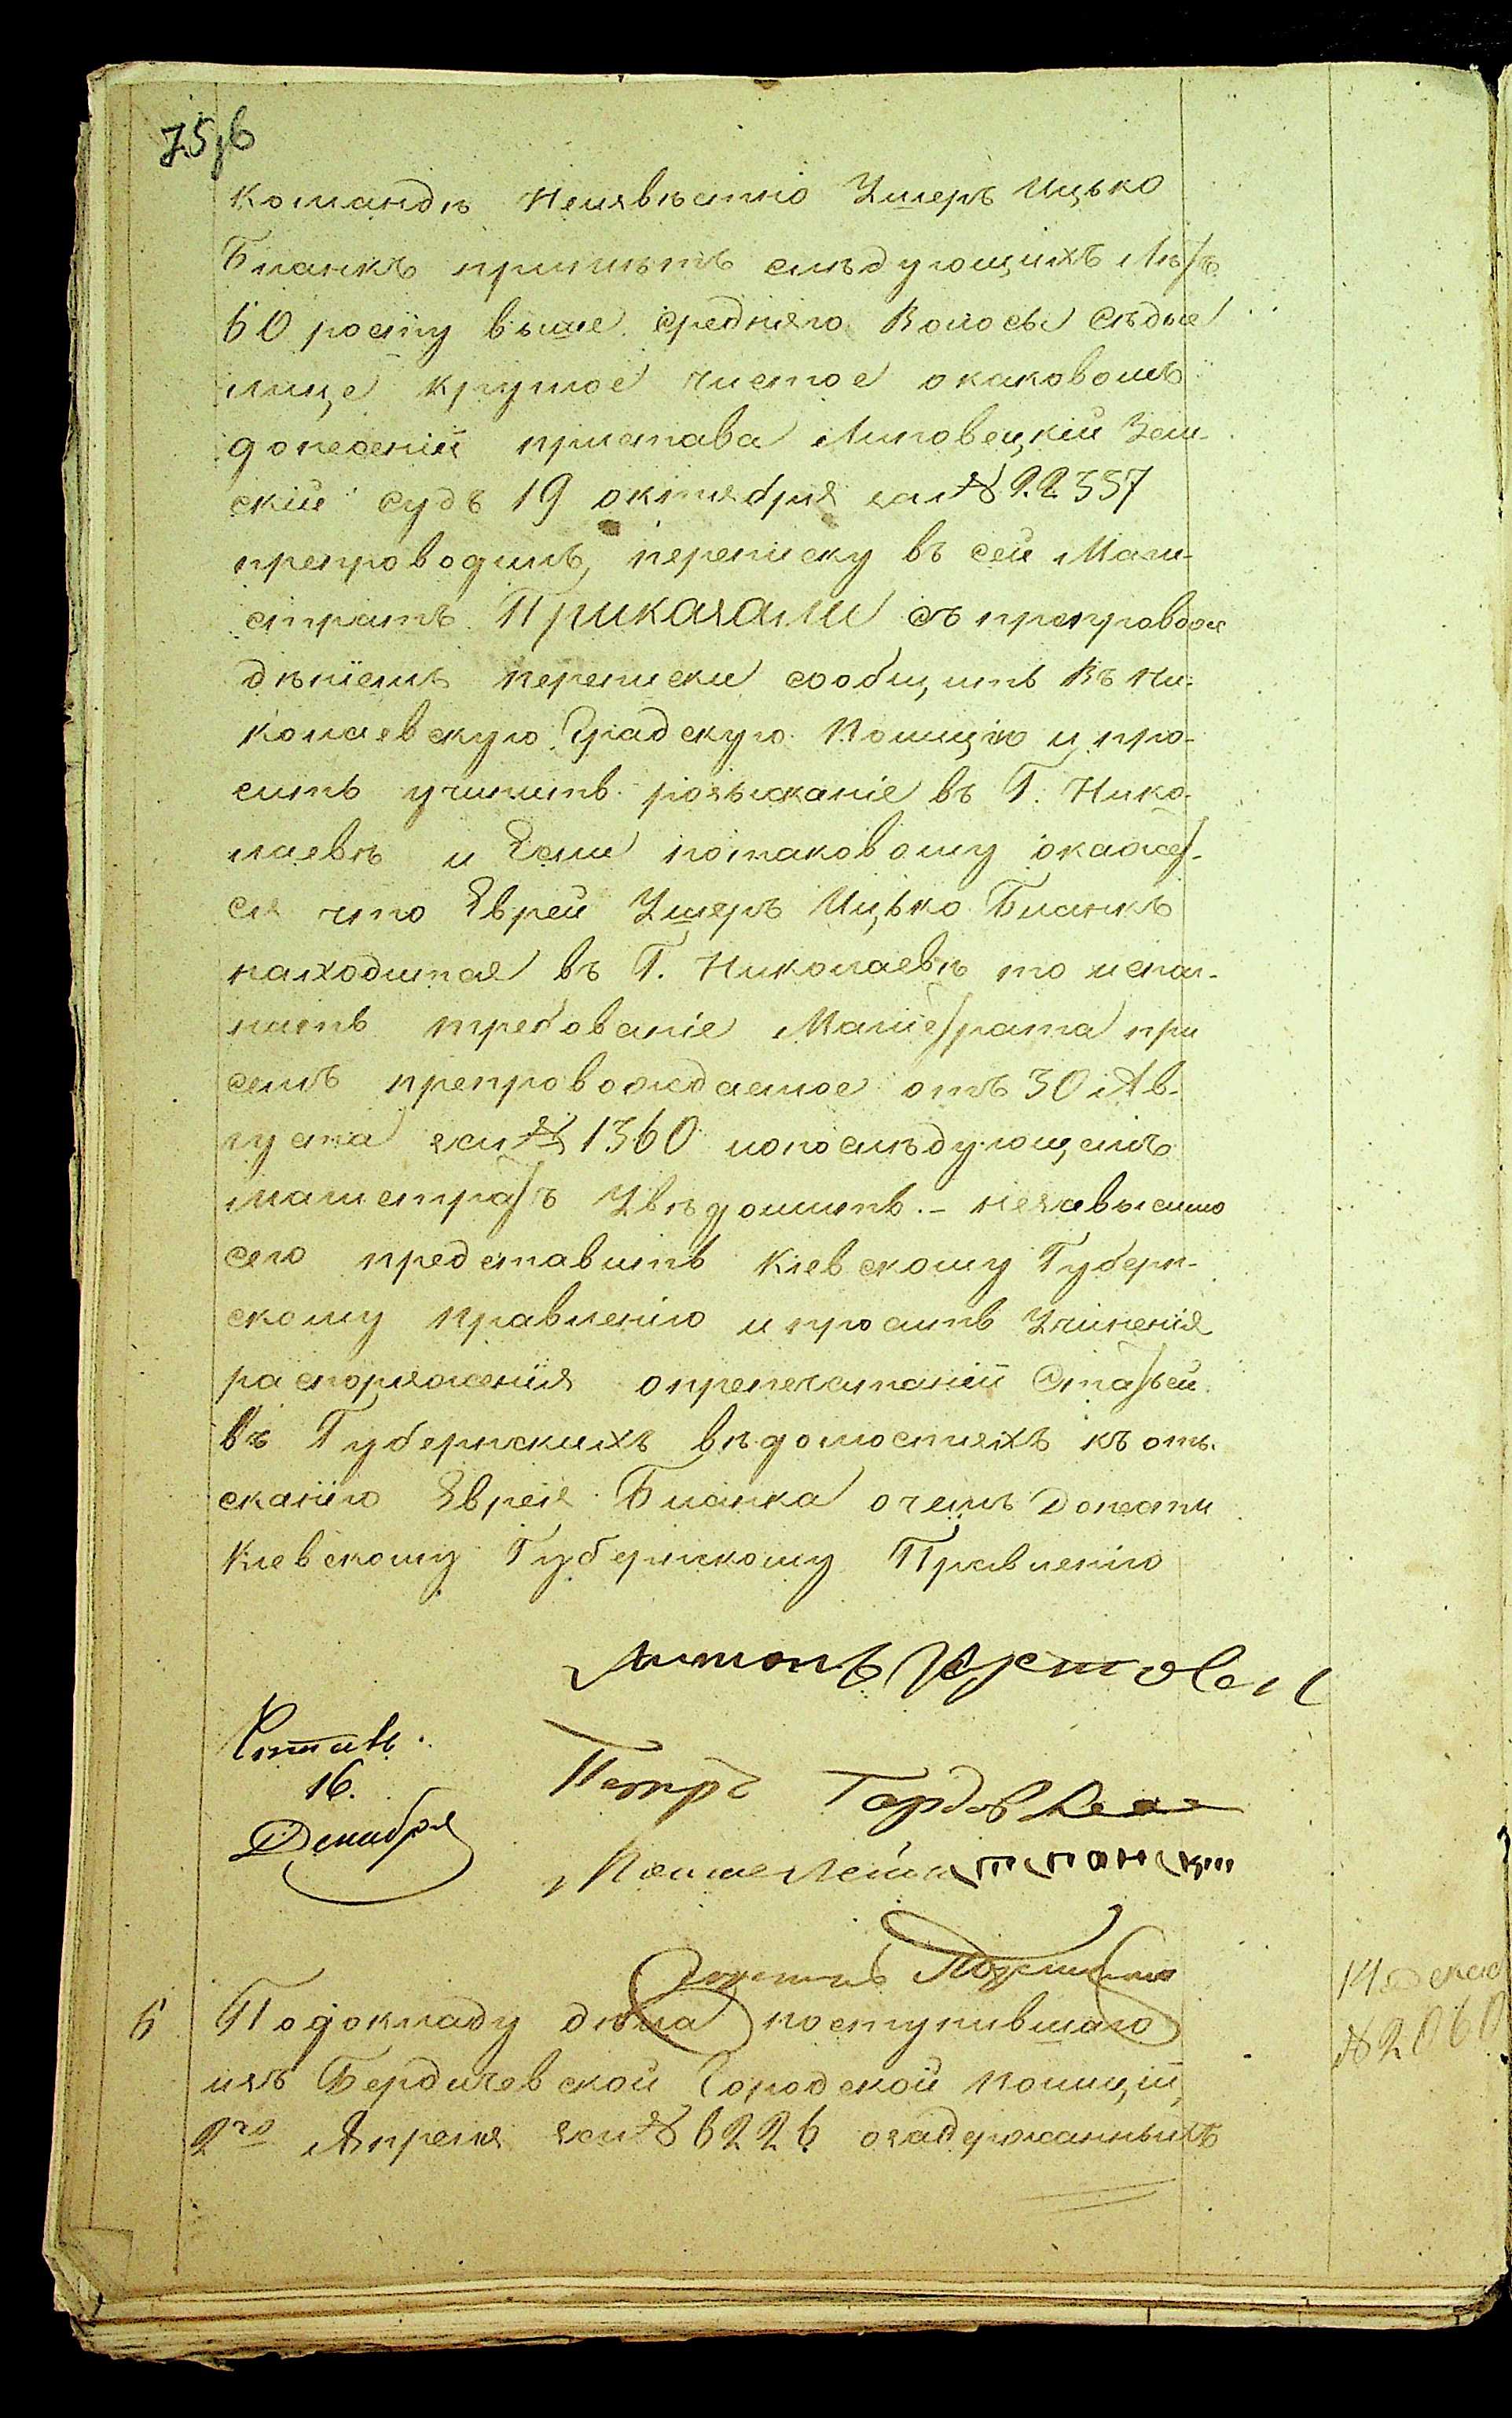 75,б
Командѣ Неизвѣстно Ушеръ Ицько
Бланкъ примѣтъ слѣдующихъ Лѣтъ
60 росту выше средняго Волосы Сѣдые
лице круглое чистое окаковомъ
донесеніи пристава Липовецкій Зем-
скій судъ 19 октября за № 22357
препроводилъ, переписку въ сей Маги-
стратъ Приказали съ препровож
дѣніемъ переписки сообщить Въ Ни-
колаевскую Градскую Полицію и про-
сить учинить розысканіе въ Г. Нико-
лаевѣ и Если потаковому окажет-
ся что Еврей Ушеръ Ицько Бланкъ
находится въ Г. Николаевѣ то испол-
нить требованіе Магистрата при
семъ препровождаемое отъ 30 Ав-
густа за № 1360 ипослѣдующемъ
магистратъ Увѣдомить.- независимо
сего представить Кіевскому Губерн-
скому правленію и просить Учиненія
распоряженія опрепечатаніи Статьи
въ Губернскихъ вѣдомостяхъ къ оты-
сканію Еврея Бланка очемъ Донести
Кіевскому Губернскому Правленію
Антонъ
Читалъ.
16.
Декабря
Петръ
6 Подокладу дѣла поступившаго
изъ Бердичевской Городской полиціи,
2го Апреля за № 6226 озадержанныхъ
14 Декаб
№ 2060